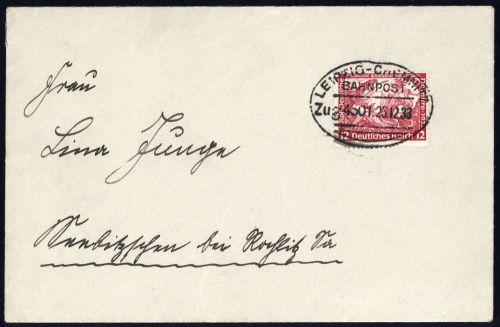 Frau
Lina Junge
Seebitzschen bei Rochlitz Sa
LEIPZIG-
BAHNPOST
Zug 4501 25.12.33
12 Deutsches Reich 12